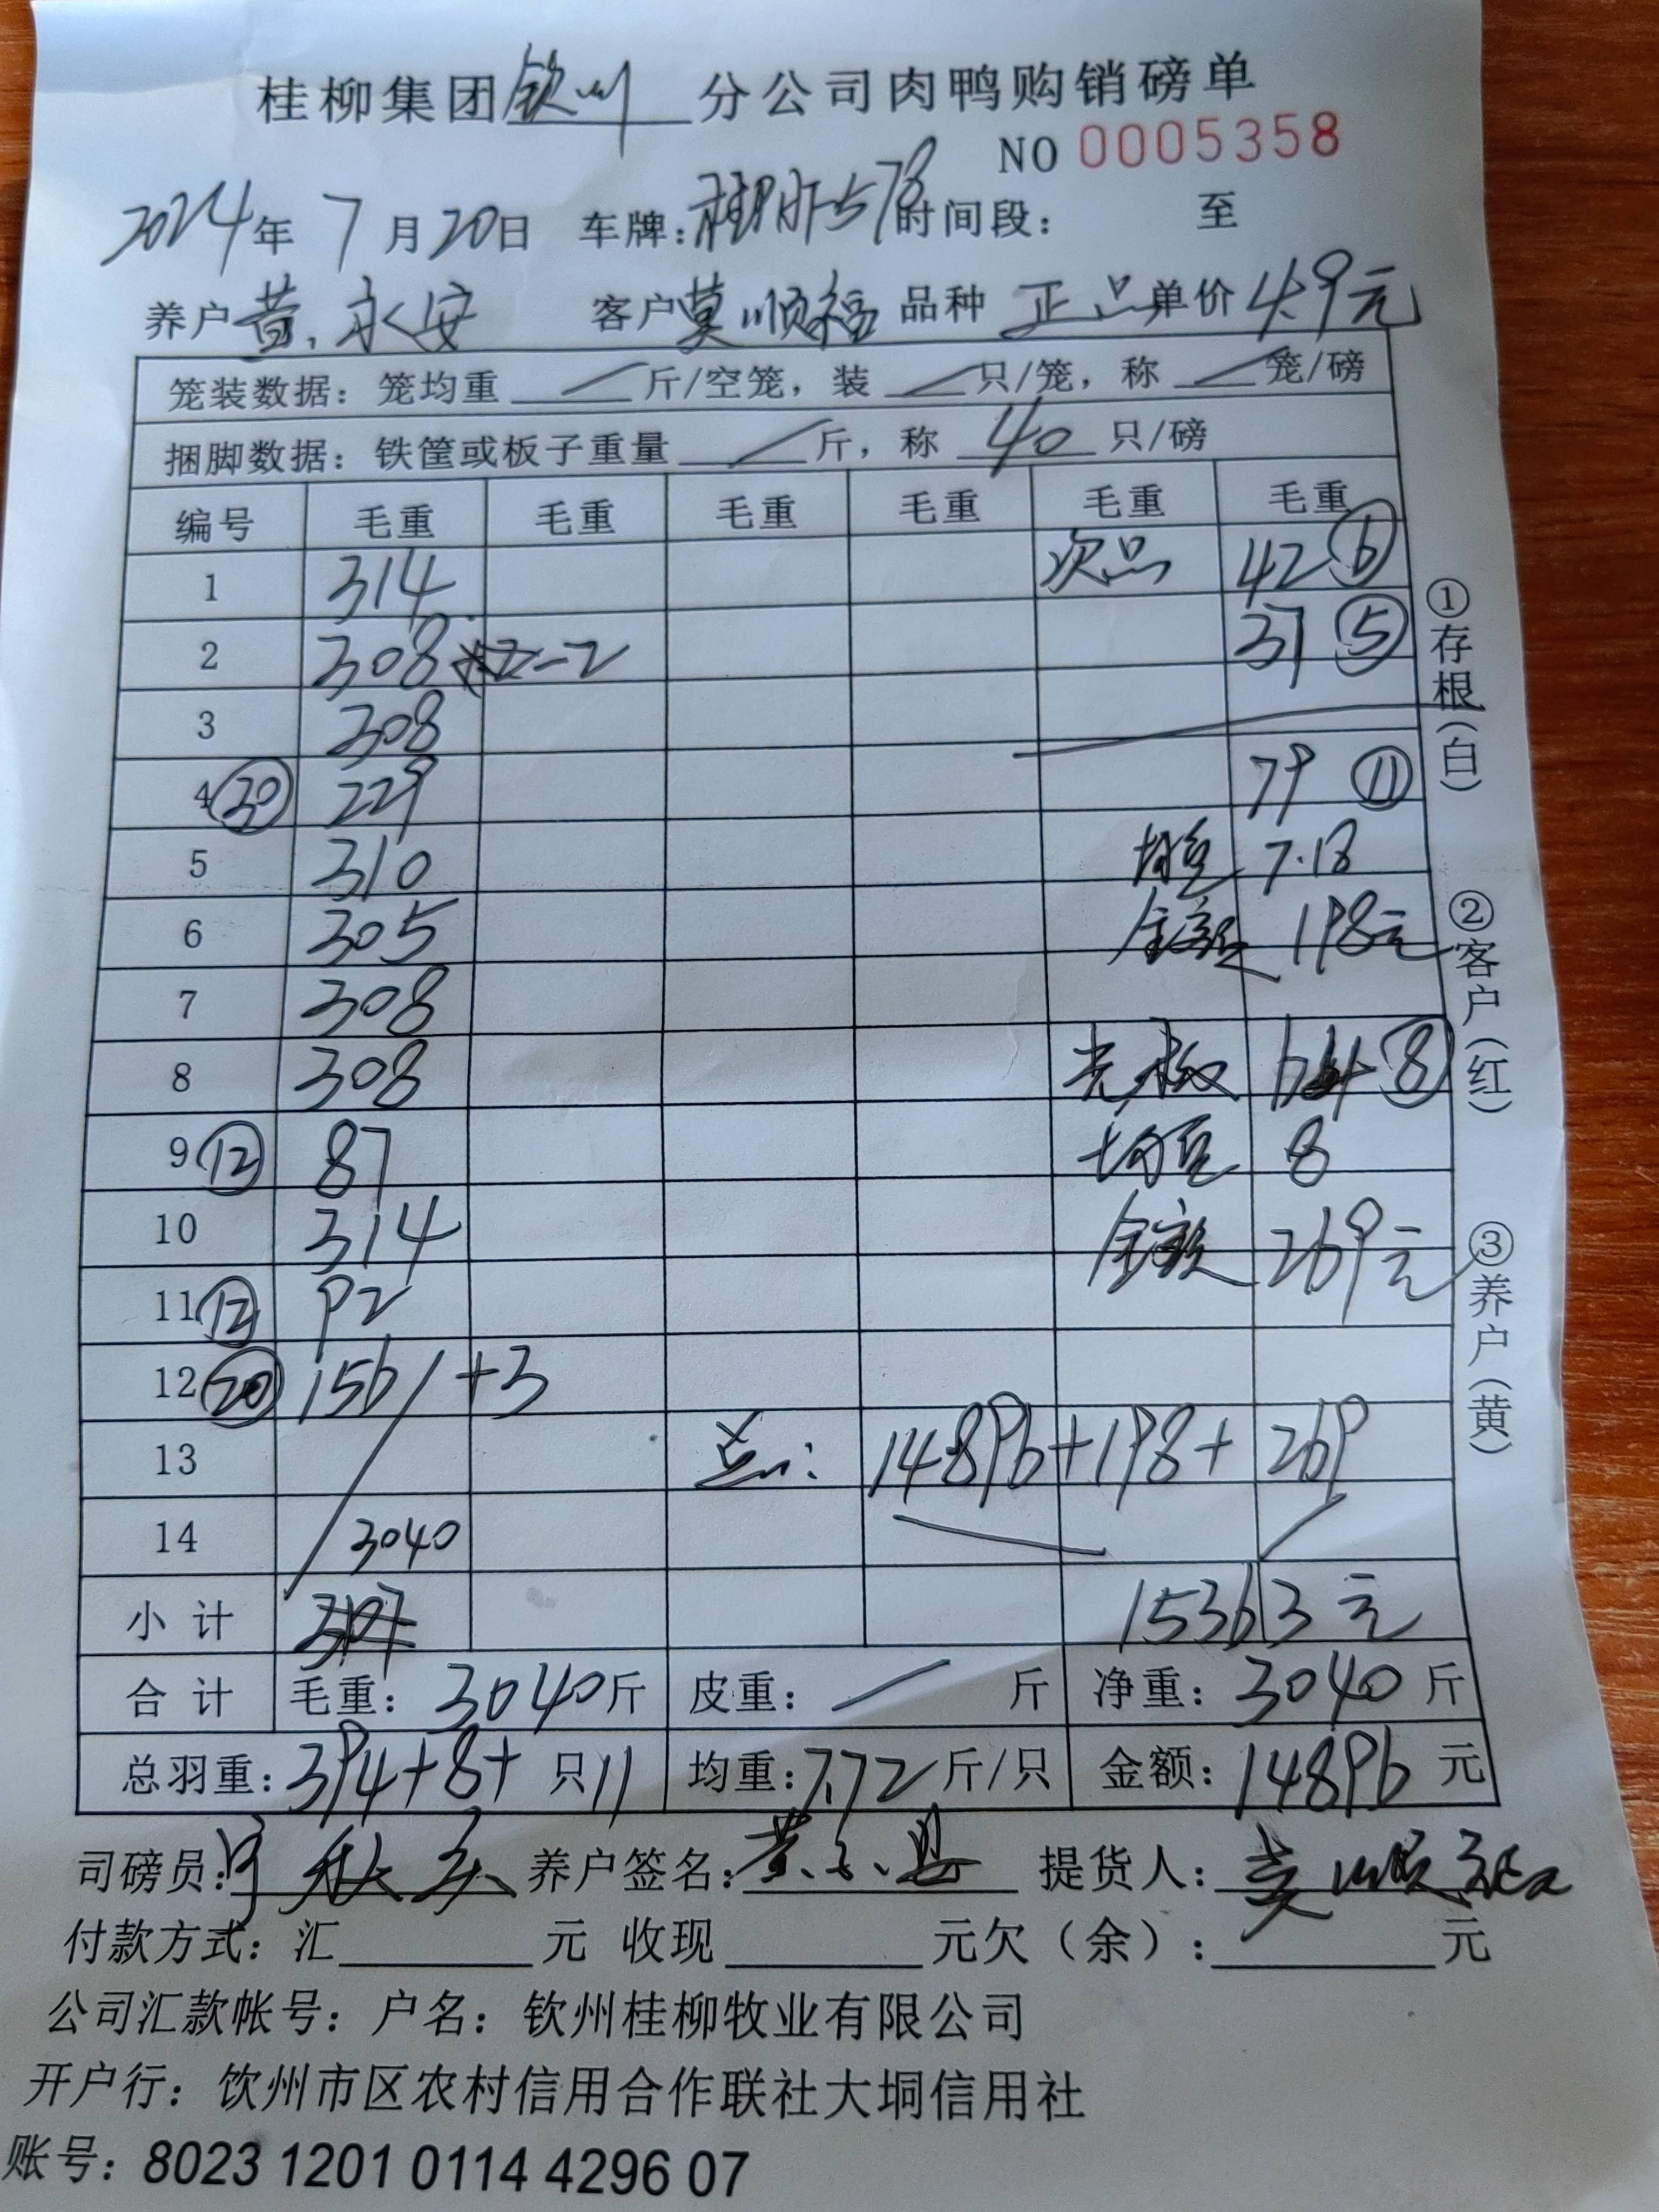 桂柳集团钦州分公司肉鸭购销磅单
NO 0005358
2024年7月20日 车牌: 时间段: 至
养户黄永安 客户莫顺福 品种 正品 单价4.9元
笼装数据: 笼均重 / 斤/空笼, 装 / 只/笼, 称 / 笼/磅
捆脚数据: 铁筐或板子重量 / 斤, 称 40 只/磅
编号 毛重 毛重 毛重 毛重 毛重 毛重
1 314 次品 42 ⑥
2 308 -2 37 ⑤
3 308
4 ㉚ 229 79 ⑪
5 310 均重 7.18
6 305 金额 198元
7 308
8 308 光板 64 ⑧
9 ⑫ 87 均重 8
10 314 金额 269元
11 ⑫ 92
12 ⑳ 156 / +3
13 总: 14896+198+269
14 3040
小计 15363元
合计 毛重: 3040斤 皮重: / 斤 净重: 3040斤
总羽重: 394+8+ 只11 均重: 7.72斤/只 金额: 14896元
①存根(白)
②客户(红)
③养户(黄)
司磅员: 养户签名: 提货人: 莫顺福
付款方式: 汇 元 收现 元欠(余): 元
公司汇款帐号: 户名: 钦州桂柳牧业有限公司
开户行: 饮州市区农村信用合作联社大垌信用社
账号: 8023 1201 0114 4296 07